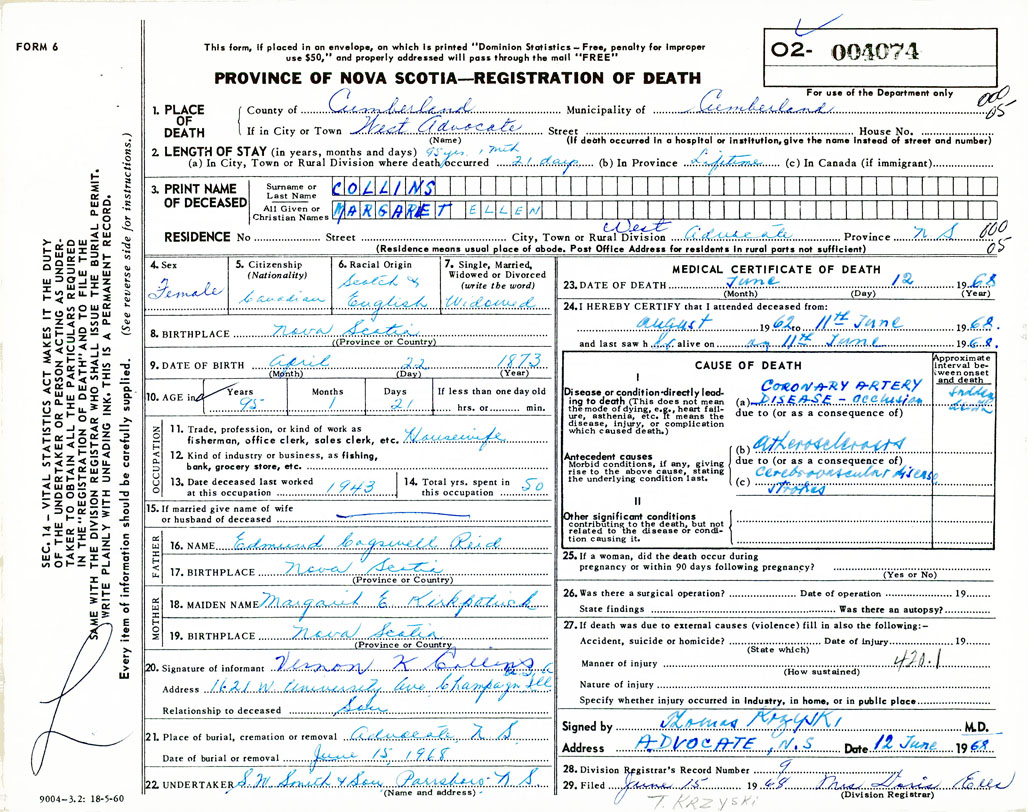 FORM 6
This form, if placed in an envelope, on which is printed "Dominion Statistics – Free, penalty for improper
use $50," and properly addressed will pass through the mail "FREE"
PROVINCE OF NOVA SCOTIA—REGISTRATION OF DEATH
O2- 004074
For use of the Department only
000
05
1. PLACE OF DEATH
County of Cumberland Municipality of Cumberland
If in City or Town West Advocate Street House No.
(Name) (If death occurred in a hospital or institution, give the name instead of street and number)
2. LENGTH OF STAY (in years, months and days) 95 yrs. 1 mth
(a) In City, Town or Rural Division where death occurred 21 days (b) In Province Lifetime (c) In Canada (if immigrant)
3. PRINT NAME OF DECEASED
Surname or Last Name COLLINS
All Given or Christian Names MARGARET ELLEN
RESIDENCE No Street City, Town or Rural Division West Advocate Province N S
000
05
(Residence means usual place of abode. Post Office Address for residents in rural parts not sufficient)
4. Sex
Female
5. Citizenship
(Nationality)
Canadian
6. Racial Origin
Scotch &
English
7. Single, Married,
Widowed or Divorced
(write the word)
Widowed
8. BIRTHPLACE Nova Scotia
(Province or Country)
9. DATE OF BIRTH April 22 1873
(Month) (Day) (Year)
10. AGE in Years 95 Months 1 Days 21 If less than one day old
hrs. or min.
OCCUPATION
11. Trade, profession, or kind of work as
fisherman, office clerk, sales clerk, etc. Housewife
12. Kind of industry or business, as fishing,
bank, grocery store, etc.
13. Date deceased last worked
at this occupation 1943
14. Total yrs. spent in
this occupation 50
15. If married give name of wife
or husband of deceased
FATHER
16. NAME Edmund Cogswell Reid
17. BIRTHPLACE Nova Scotia
(Province or Country)
MOTHER
18. MAIDEN NAME Margaret E Kirkpatrick
19. BIRTHPLACE Nova Scotia
(Province or Country)
20. Signature of informant Vernon K Collins
Address 1621 W University Ave Champaign Ill
Relationship to deceased Son
21. Place of burial, cremation or removal Advocate, N S.
Date of burial or removal June 15, 1968
22. UNDERTAKER S.W. Smith & Son Parrsboro N S
(Name and address)
MEDICAL CERTIFICATE OF DEATH
23. DATE OF DEATH June 12 1968
(Month) (Day) (Year)
24. I HEREBY CERTIFY that I attended deceased from:
august 1962 to 11th June 1968.
and last saw h alive on 11th June 1968.
CAUSE OF DEATH
Approximate
interval be-
tween onset
and death
I
Disease or condition directly lead-
ing to death (This does not mean
the mode of dying, e.g., heart fail-
ure, asthenia, etc. It means the
disease, injury, or complication
which caused death.)
(a) CORONARY ARTERY
DISEASE – OCCLUSION
Sudden
death
due to (or as a consequence of)
Antecedent causes
Morbid conditions, if any, giving
rise to the above cause, stating
the underlying condition last.
(b) Atherosclerosis
due to (or as a consequence of)
(c) Cerebrovascular disease
strokes
II
Other significant conditions
contributing to the death, but not
related to the disease or condi-
tion causing it.
25. If a woman, did the death occur during
pregnancy or within 90 days following pregnancy?
(Yes or No)
26. Was there a surgical operation? Date of operation 19
State findings Was there an autopsy?
27. If death was due to external causes (violence) fill in also the following:-
Accident, suicide or homicide? Date of injury 19
(State which)
Manner of injury 420.1
(How sustained)
Nature of injury
Specify whether injury occurred in industry, in home, or in public place
Signed by Thomas Krzyski M.D.
Address ADVOCATE, N.S Date 12 June 1968
28. Division Registrar's Record Number 9
29. Filed June 15 1968 Mrs Doris Ells
(Division Registrar)
T. KRZYSKI
SEC. 14 – VITAL STATISTICS ACT MAKES IT THE DUTY
OF THE UNDERTAKER OR PERSON ACTING AS UNDER-
TAKER TO OBTAIN ALL THE PARTICULARS REQUIRED
IN THE "REGISTRATION OF DEATH" AND TO FILE THE
SAME WITH THE DIVISION REGISTRAR WHO SHALL ISSUE THE BURIAL PERMIT.
WRITE PLAINLY WITH UNFADING INK. THIS IS A PERMANENT RECORD.
Every item of information should be carefully supplied. (See reverse side for instructions.)
9004–3.2: 18-5-60